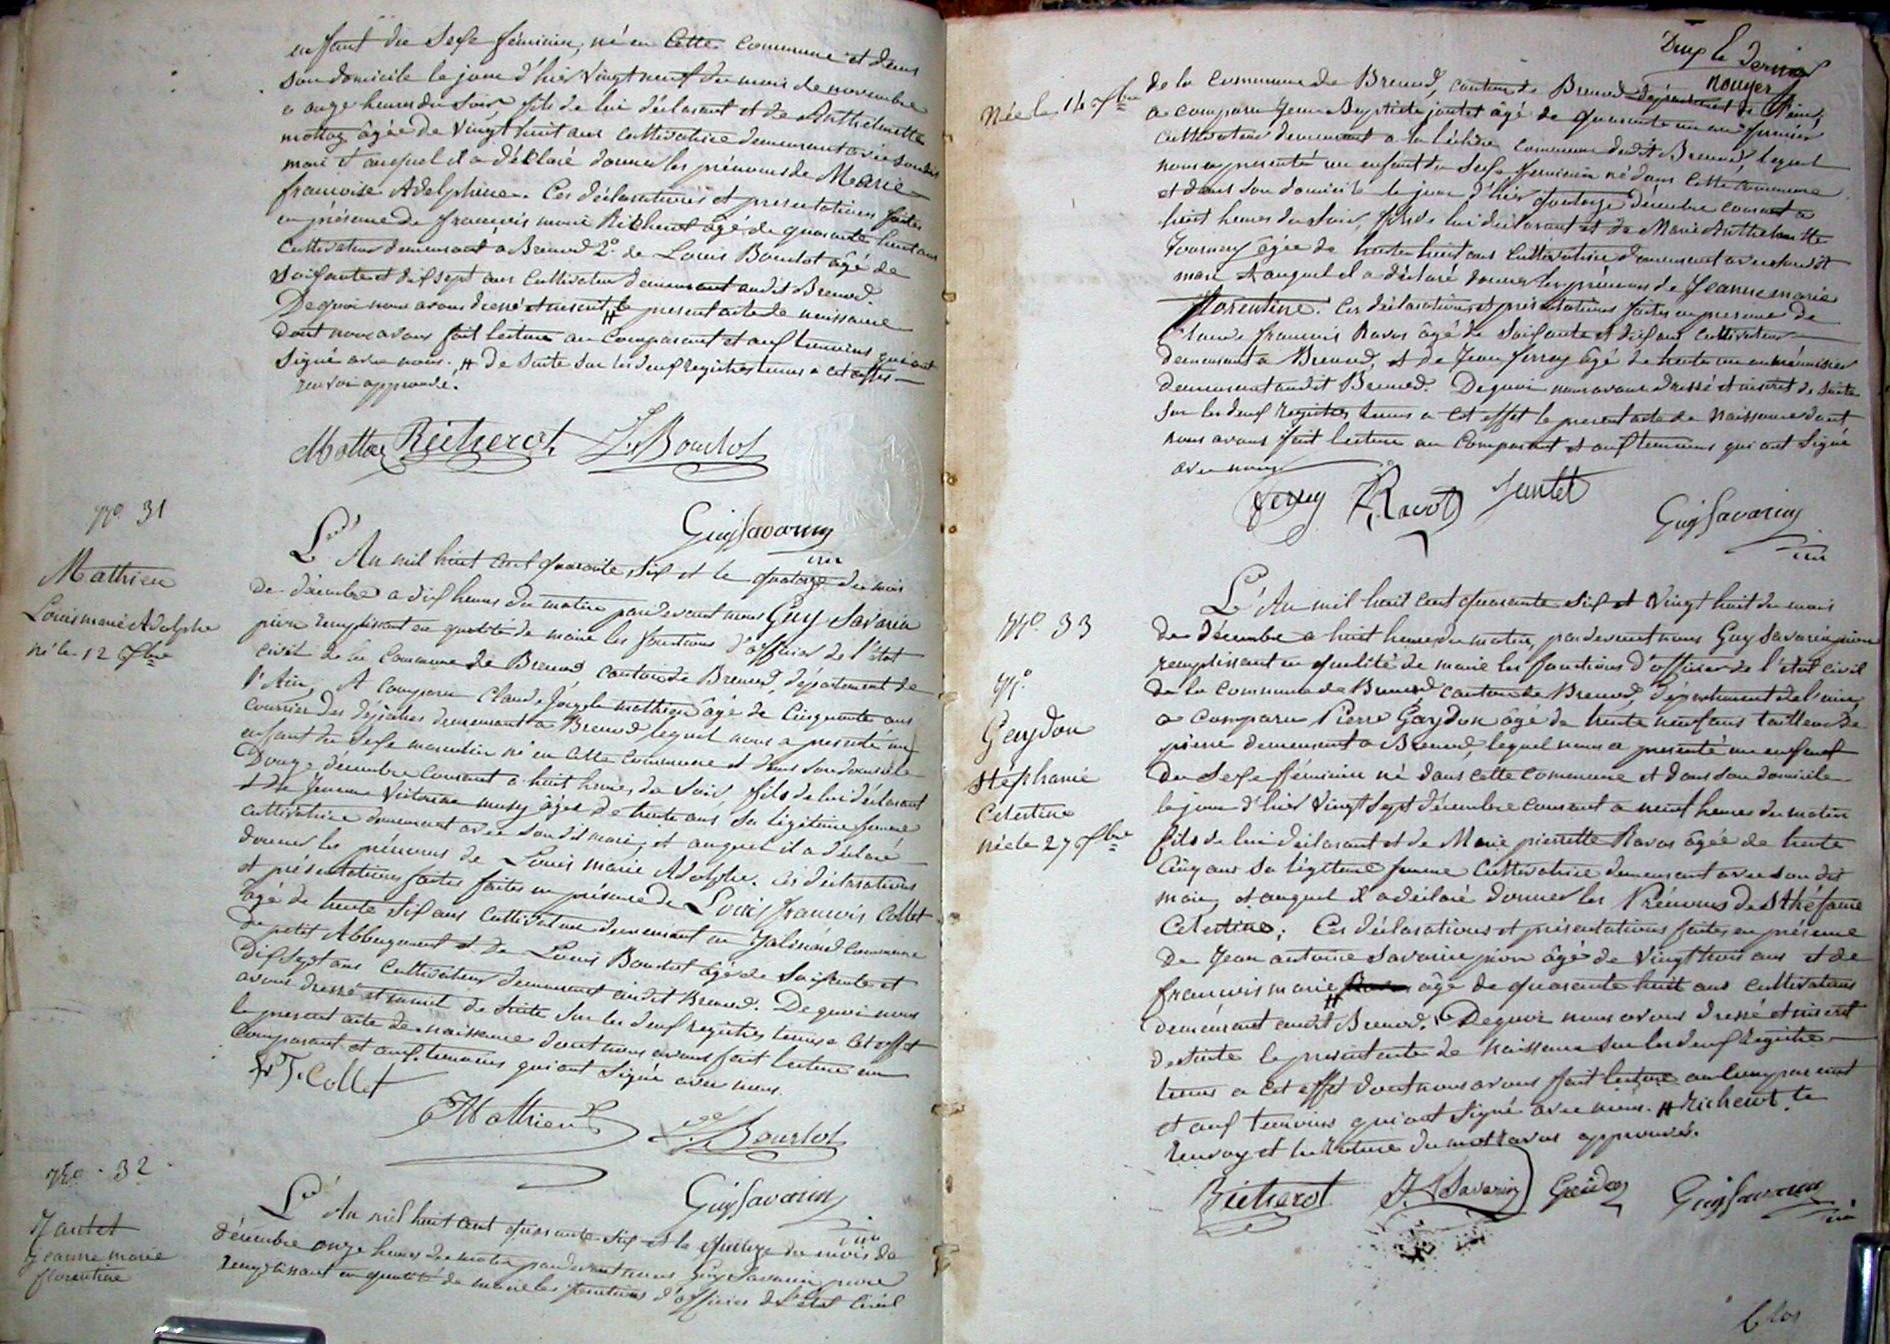 enfant du sexe féminin, né en cette commune et dans
son domicile le jour d'hier vingt neuf du mois de novembre
a onze heures du soir, fils de lui déclarant et de Anthelmette
mottaz âgée de vingt huit ans cultivatrice demeurant avec son dit
mari et auquel il a déclaré donner les prénoms de Marie
françoise Adelphine. Ces déclarations et presentations faites
en présence de françois marie Richerot âgé de quarante huit ans
Cultivateur demeurant à Brenod 2° de Louis Bourlot âgé de
soixante et dix sept ans cultivateur demeurant audit Brenod.
De quoi nous avons dressé et inscrit # le present acte de naissance
dont nous avons fait lecture au comparant et aux temoins qui ont
signé avec nous. # de suite sur les deux registres tenus a cet effet
renvoi approuvé.
Mottaz Richerot Bourlot
Guy Savarin
N° 31
Mathieu
Louis marie Adolphe
né le 12 Xbre
L'An mil huit cent quarante six et le quatorze du mois
de décembre a dix heures du matin pardevant nous Guy Savarin
pierre remplissant en qualité de maire les fonctions d'officier de l'état
civil de la Commune de Brenod, canton de Brenod, département de
l'Ain, A comparu Claude Joseph mathieu âgé de cinquante ans
courrier des dépêches demeurant a Brenod lequel nous a presenté un
enfant du sexe masculin né en cette commune et dans son domicile
Douze décembre courant a huit heures du soir fils de lui déclarant
et de Jeanne Victorine musy âgée de trente ans sa légitime femme
cultivatrice demeurant avec son dit mari, et auquel il a déclaré
donner les prénoms de Louis marie Adolphe. Ces déclarations
et présentations faites faites en présence de Louis françois Collet
âgé de trente six ans cultivateur demeurant en Jalinard commune
du petit Abbergement et de Louis Bourlot âgé de soixante et
dix sept ans cultivateur demeurant audit Brenod. De quoi nous
avons dressé et inscrit de suite sur les deux registres tenus a cet effet
le present acte de naissance dont nous avons fait lecture au
comparant et aux temoins qui ont signé avec nous.
Collet
Mathieu Bourlot
Guy Savarin
N° 32
Jantet
Jeanne marie
florentine
L'An mil huit cent quarante six et le quinze du mois de
décembre onze heures du matin pardevant nous Guy Savarin pierre
remplissant en qualité de maire les fonctions d'officier de l'état civil
Née le 14 Xbre
de la commune de Brenod, canton de Brenod département de l'Ain,
a comparu Jean Baptiste jantet âgé de quarante un ans
cultivateur demeurant a la commune dudit Brenod, lequel
nous a presenté un enfant du sexe feminin né dans cette commune
et dans son domicile le jour d'hier quatorze décembre courant a
huit heures du soir, fils de lui déclarant et de Marie Anthelmette
âgée de trente huit ans cultivatrice demeurant avec son dit
mari et auquel il a déclaré donner les prénoms de Jeanne marie
florentine. Ces déclarations et présentations faites en presence de
Claude françois Ravas âgé de soixante et dix ans cultivateur
demeurant a Brenod, et de Jean ferrey âgé de trente un ans
demeurant audit Brenod. De quoi nous avons dressé et inscrit de suite
sur les deux registres tenus a cet effet le present acte de naissance dont
nous avons fait lecture au comparant et aux temoins qui ont signé
avec nous
ferrey Ravot Jantet
Guy Savarin
N° 33
N°
Gaydon
Stephanie
Celestine
née le 27 Xbre
L'An mil huit cent quarante six et vingt huit du mois
de décembre a huit heures du matin, pardevant nous Guy Savarin pierre
remplissant en qualité de maire les fonctions d'officier de l'état civil
de la commune de Brenod canton de Brenod, département de l'ain,
a comparu Pierre Gaydon âgé de trente neuf ans tailleur de
pierre demeurant a Brenod, lequel nous a presenté un enfant
du sexe féminin né dans cette commune et dans son domicile
le jour d'hier vingt sept décembre courant a neuf heures du matin
fils de lui déclarant et de Marie pierrette Ravas âgée de trente
cinq ans sa légitime femme cultivatrice demeurant avec son dit
mari, et auquel il a déclaré donner les Prénoms de Sthéfanie
Celestine; Ces déclarations et présentations faites en présence
de Jean antoine Savarin pierre âgé de vingt trois ans et de
françois marie # âgé de quarante huit ans cultivateurs
demeurant audit Brenod. De quoi nous avons dressé et inscrit
de suite le présent acte de naissance sur les deux registres
tenus a cet effet dont nous avons fait lecture au comparant
et aux temoins qui ont signé avec nous. # Richerot. le
renvoy et la rature du mot ravas approuvés.
Richerot Savarin Gaidon Guy Savarin
Clos